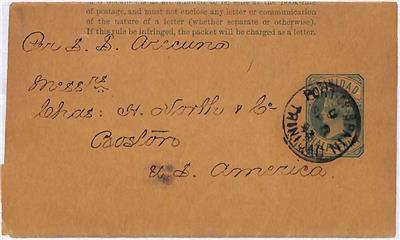 of postage, and must not enclose any letter or communication
of the nature of a letter (whether separate or otherwise).
If this rule be infringed, the packet will be charged as a letter.
Per S. S.
Messrs
Chas. H. North & Co
Boston
U. S. America.
TRINIDAD
PORT OF SPAIN
TRINIDAD